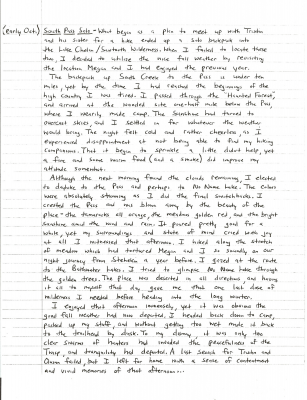 (early Oct.) South Pass Solo - What began as a plan to meet up with Tristan
and his sister for a hike ended up a solo backpack into
the Lake Chelan / Sawtooth Wilderness. When I failed to locate those
two, I decided to utilize the nice fall weather by revisiting
the location Megan and I had enjoyed the previous year.
The backpack up Creek to the Pass is under ten
miles, yet by the time I had reached the beginning of the
high country I was tired. I passed through the "Haunted Forest"
and arrived at the wooded site one-half mile below the Pass,
where I wearily made camp. The sunshine had turned to
overcast skies and I settled in for whatever the weather
would bring. The night felt cold and rather cheerless, as I
experienced disappointment at not being able to find my hiking
companions. That it began to sprinkle a little didn't help, yet
a fire and some warm food (and a smoke) did improve my
attitude somewhat.
Although the next morning found the clouds remaining, I elected
to dayhike to the Pass and perhaps to No Name Lake. The colors
were absolutely stunning as I did the final switchbacks. I
crested the pass and was blown away by the beauty of the
place - the tamaracks all orange, the meadow golden red, and the bright
sunshine amid the wind and rain. It poured pretty good for a
while, yet my surroundings and state of mind cried with joy
at all I witnessed that afternoon. I hiked along the stretch
of meadow which had tortured Megan and I so soundly on our
night journey from Stehekin a year before. I gazed at the route
to the Lakes. I tried to glimpse No Name Lake through
the golden trees. The place was deserted in all directions and having
it all to myself that day, gave me that one last dose of
wilderness I needed before heading into the long winter.
I enjoyed that afternoon immensely, yet it was obvious the
good fall weather had now departed. I headed back down to camp,
packed up my stuff, and without getting too wet made it back
to the trailhead by dusk. To my dismay, it was only too
clear swarms of hunters had invaded the peacefulness of the
Twisp, and tranquility had departed. A last search for Tristan and
failed, but I left for home with a sense of contentment
and vivid memories of that afternoon...